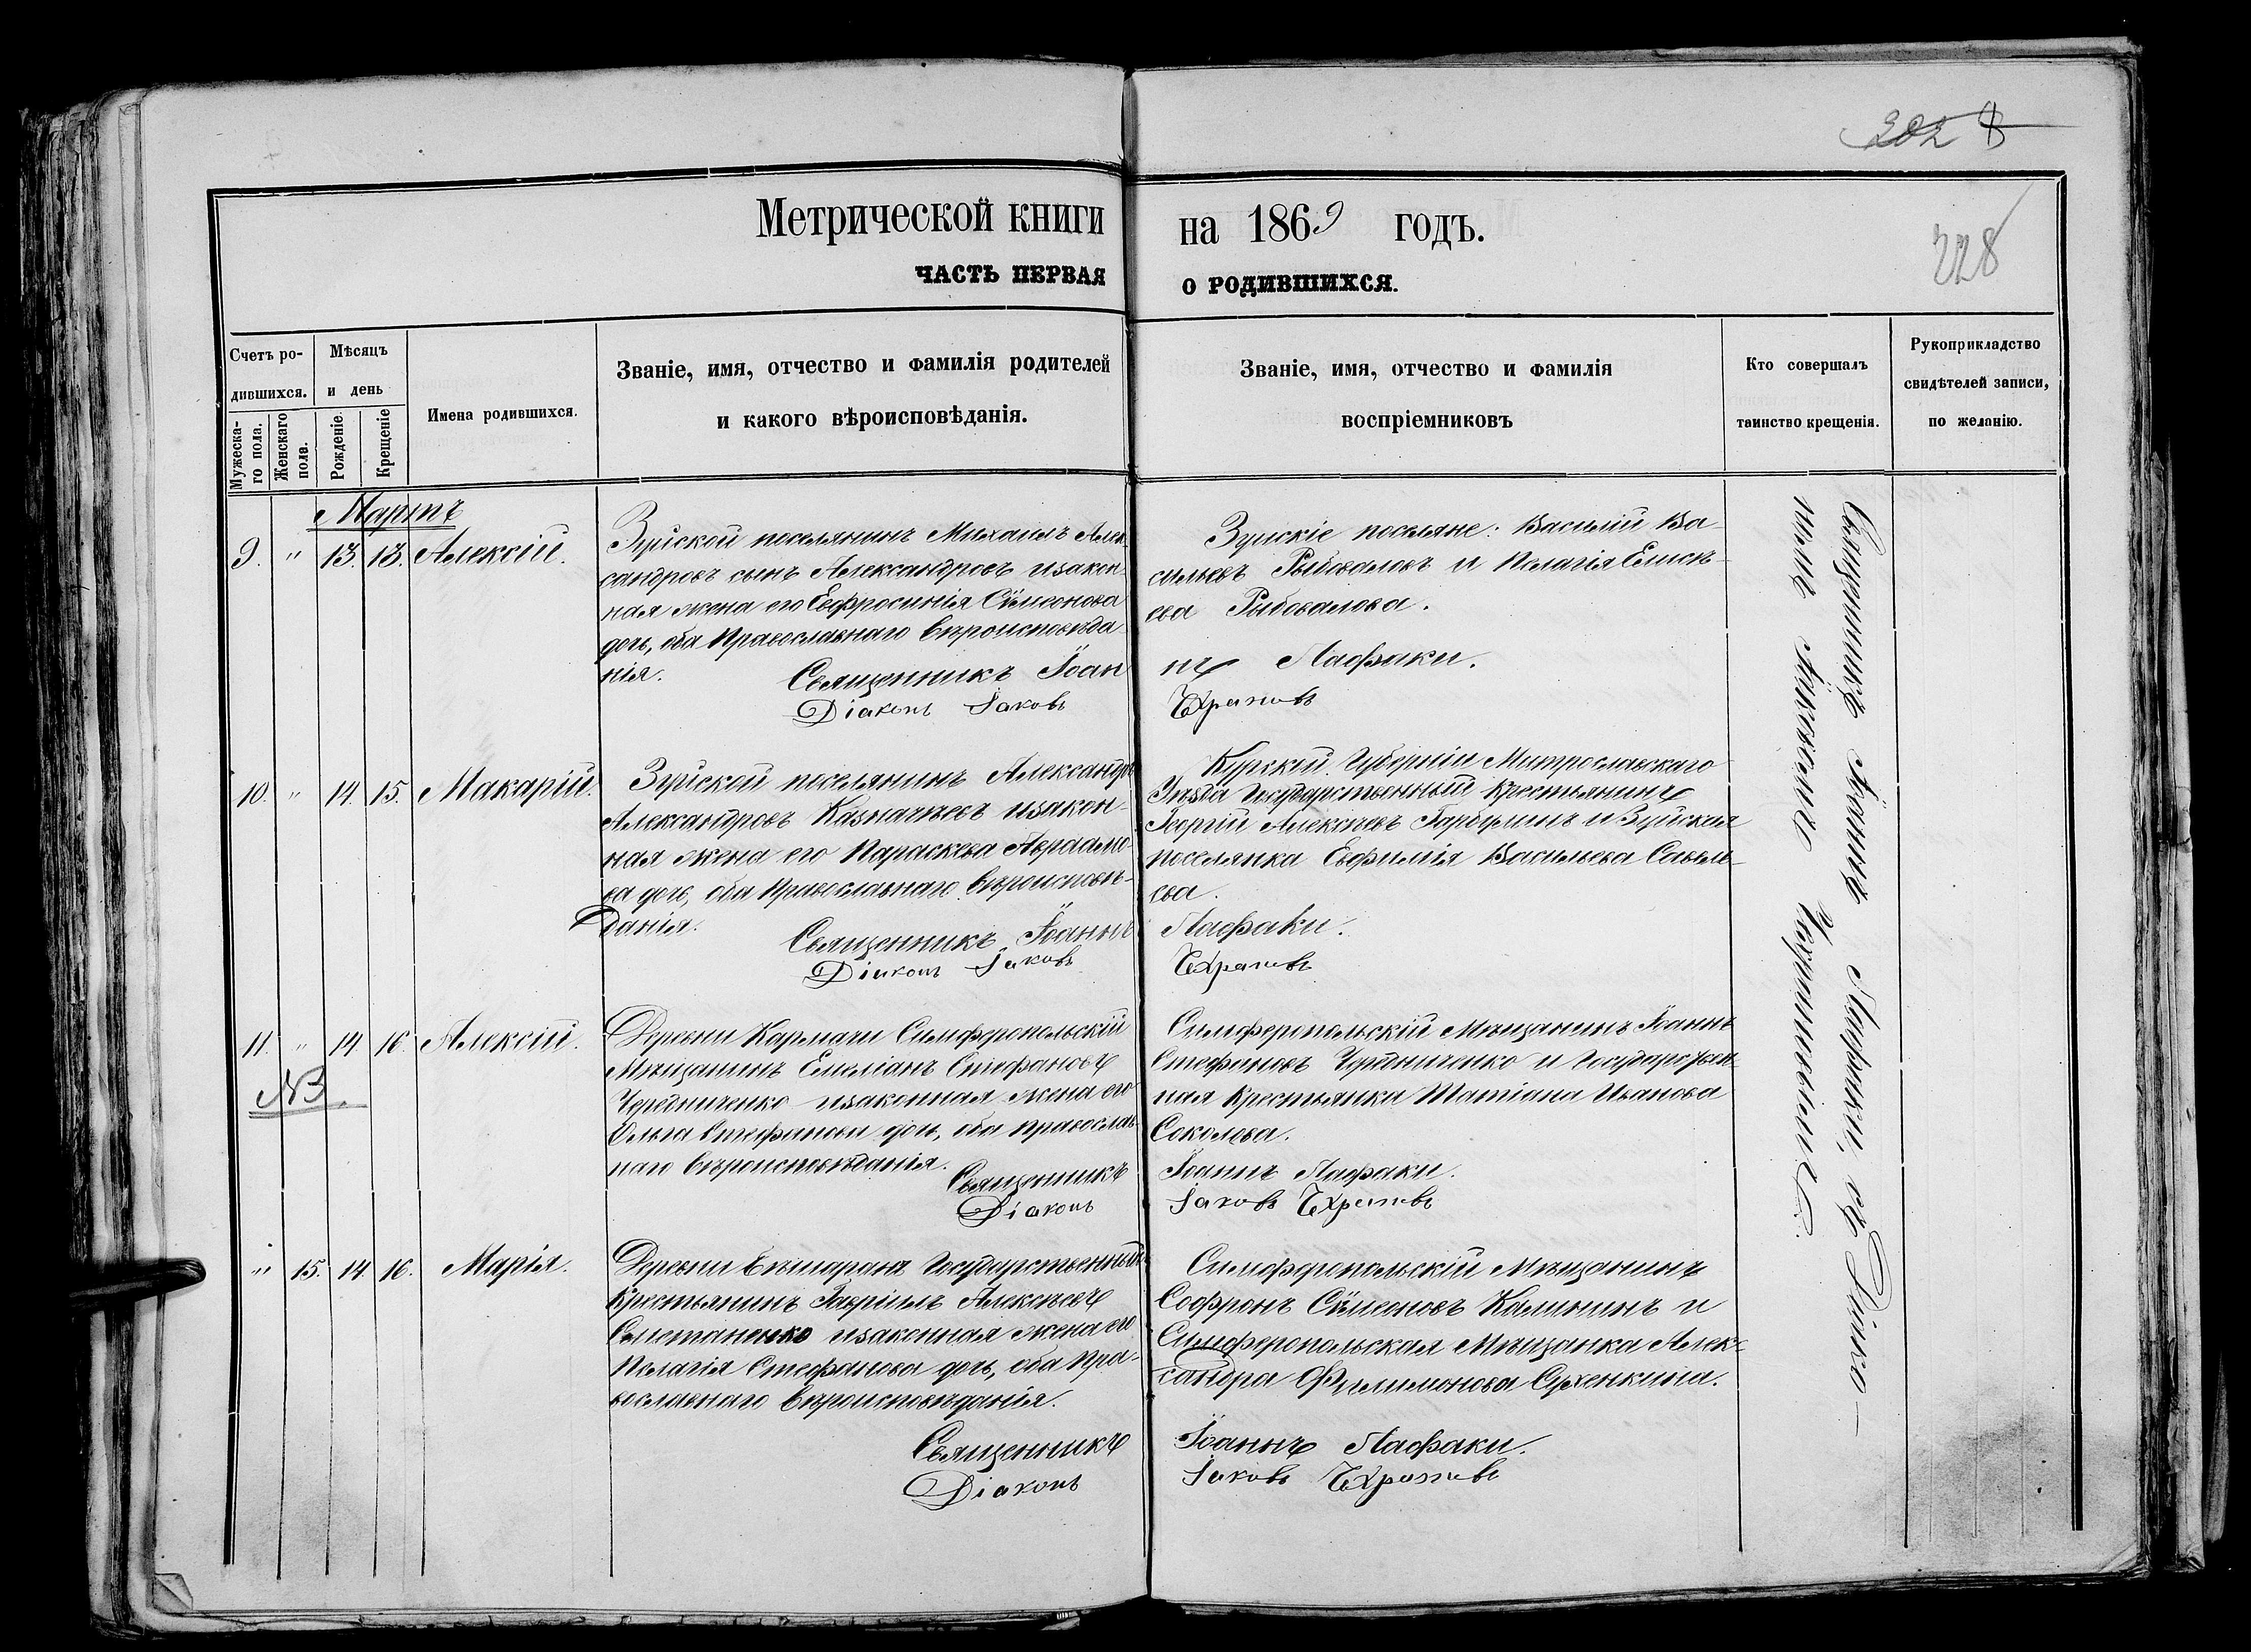 202 8
228
Метрической книги на 1869 годъ.
ЧАСТЬ ПЕРВАЯ О РОДИВШИХСЯ.
Счетъ ро-
дившихся.
Мужеска-
го пола.
Женскаго
пола.
Мѣсяцъ
и день
Рожденіе.
Крещеніе
Имена родившихся.
Званіе, имя, отчество и фамилія родителей
и какого вѣроисповѣданія.
Званіе, имя, отчество и фамилія
воспріемниковъ
Кто совершалъ
таинство крещенія.
Рукоприкладство
свидѣтелей записи,
по желанію.
Мартъ
9. " 13. 13. Алексій.
Зуйской поселянинъ Михаилъ Алек-
сандровъ сынъ Александровъ изакон-
ная жена его Евфросинія Сѵмеонова
дочь, оба Православнаго вѣроисповѣда-
нія.
Зуйскіе поселяне: Василій Ва-
сильевъ Рыбоваловъ и Пелагія Елисѣ-
ева Рыбовалова.
Священникъ Іоаннъ Лафаки.
Діаконъ Іаковъ
10. " 14. 15. Макарій.
Зуйской поселянинъ Александръ
Александровъ Казначѣевъ изакон-
ная жена его Параскева Авраамо-
ва дочь, оба Православнаго вѣроисповѣ-
данія.
Курской Губерніи
Уѣзда Государственный Крестьянинъ
Георгій Алексѣевъ и Зуйская
поселянка Евфимія Васильева Савель-
ева.
Священникъ Іоаннъ Лафаки.
Діаконъ Іаковъ
11. " 14 16. Алексій.
NB.
Деревни Симферопольскій
Мѣщанинъ Емеліанъ Стефановъ
Чередниченко изаконная жена его
Ольга Стефанова дочь, оба православ-
наго вѣроисповѣданія.
Симферопольскій Мѣщанинъ Іоаннъ
Стефановъ Чередниченко и Государствен-
ная Крестьянка Татіана Иванова
Соколова.
Священникъ Іоаннъ Лафаки.
Діаконъ Іаковъ
" 15. 14. 16. Марія.
Деревни Государственный
Крестьянинъ Гавріилъ Алексѣевъ
изаконная жена его
Пелагія Стефанова дочь, оба Пра-
вославнаго вѣроисповѣданія.
Симферопольскій Мѣщанинъ
Софронъ Сѵмеоновъ Калининъ и
Симферопольская Мѣщанка Алек-
сандра Филимонова Сухенкина.
Священникъ Іоаннъ Лафаки.
Діаконъ Іаковъ
Священникъ Іоаннъ Лафаки, съ Діако-
номъ